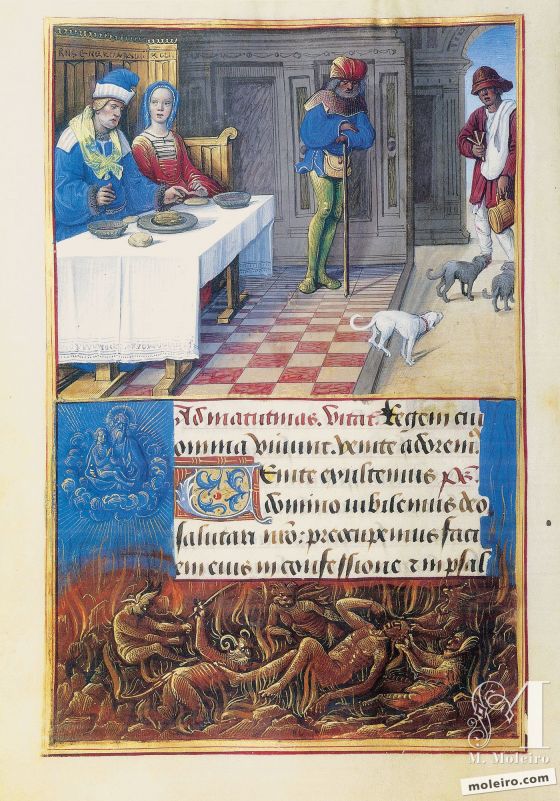 Ad matutinas. Vitat. Regem cui
omnia vivunt. venite adorem9
Venite exultemus ps.
domino iubilemus deo
salutari nro: preocupemus faci
em eius in confessione et in psal
M. Moleiro
moleiro.com